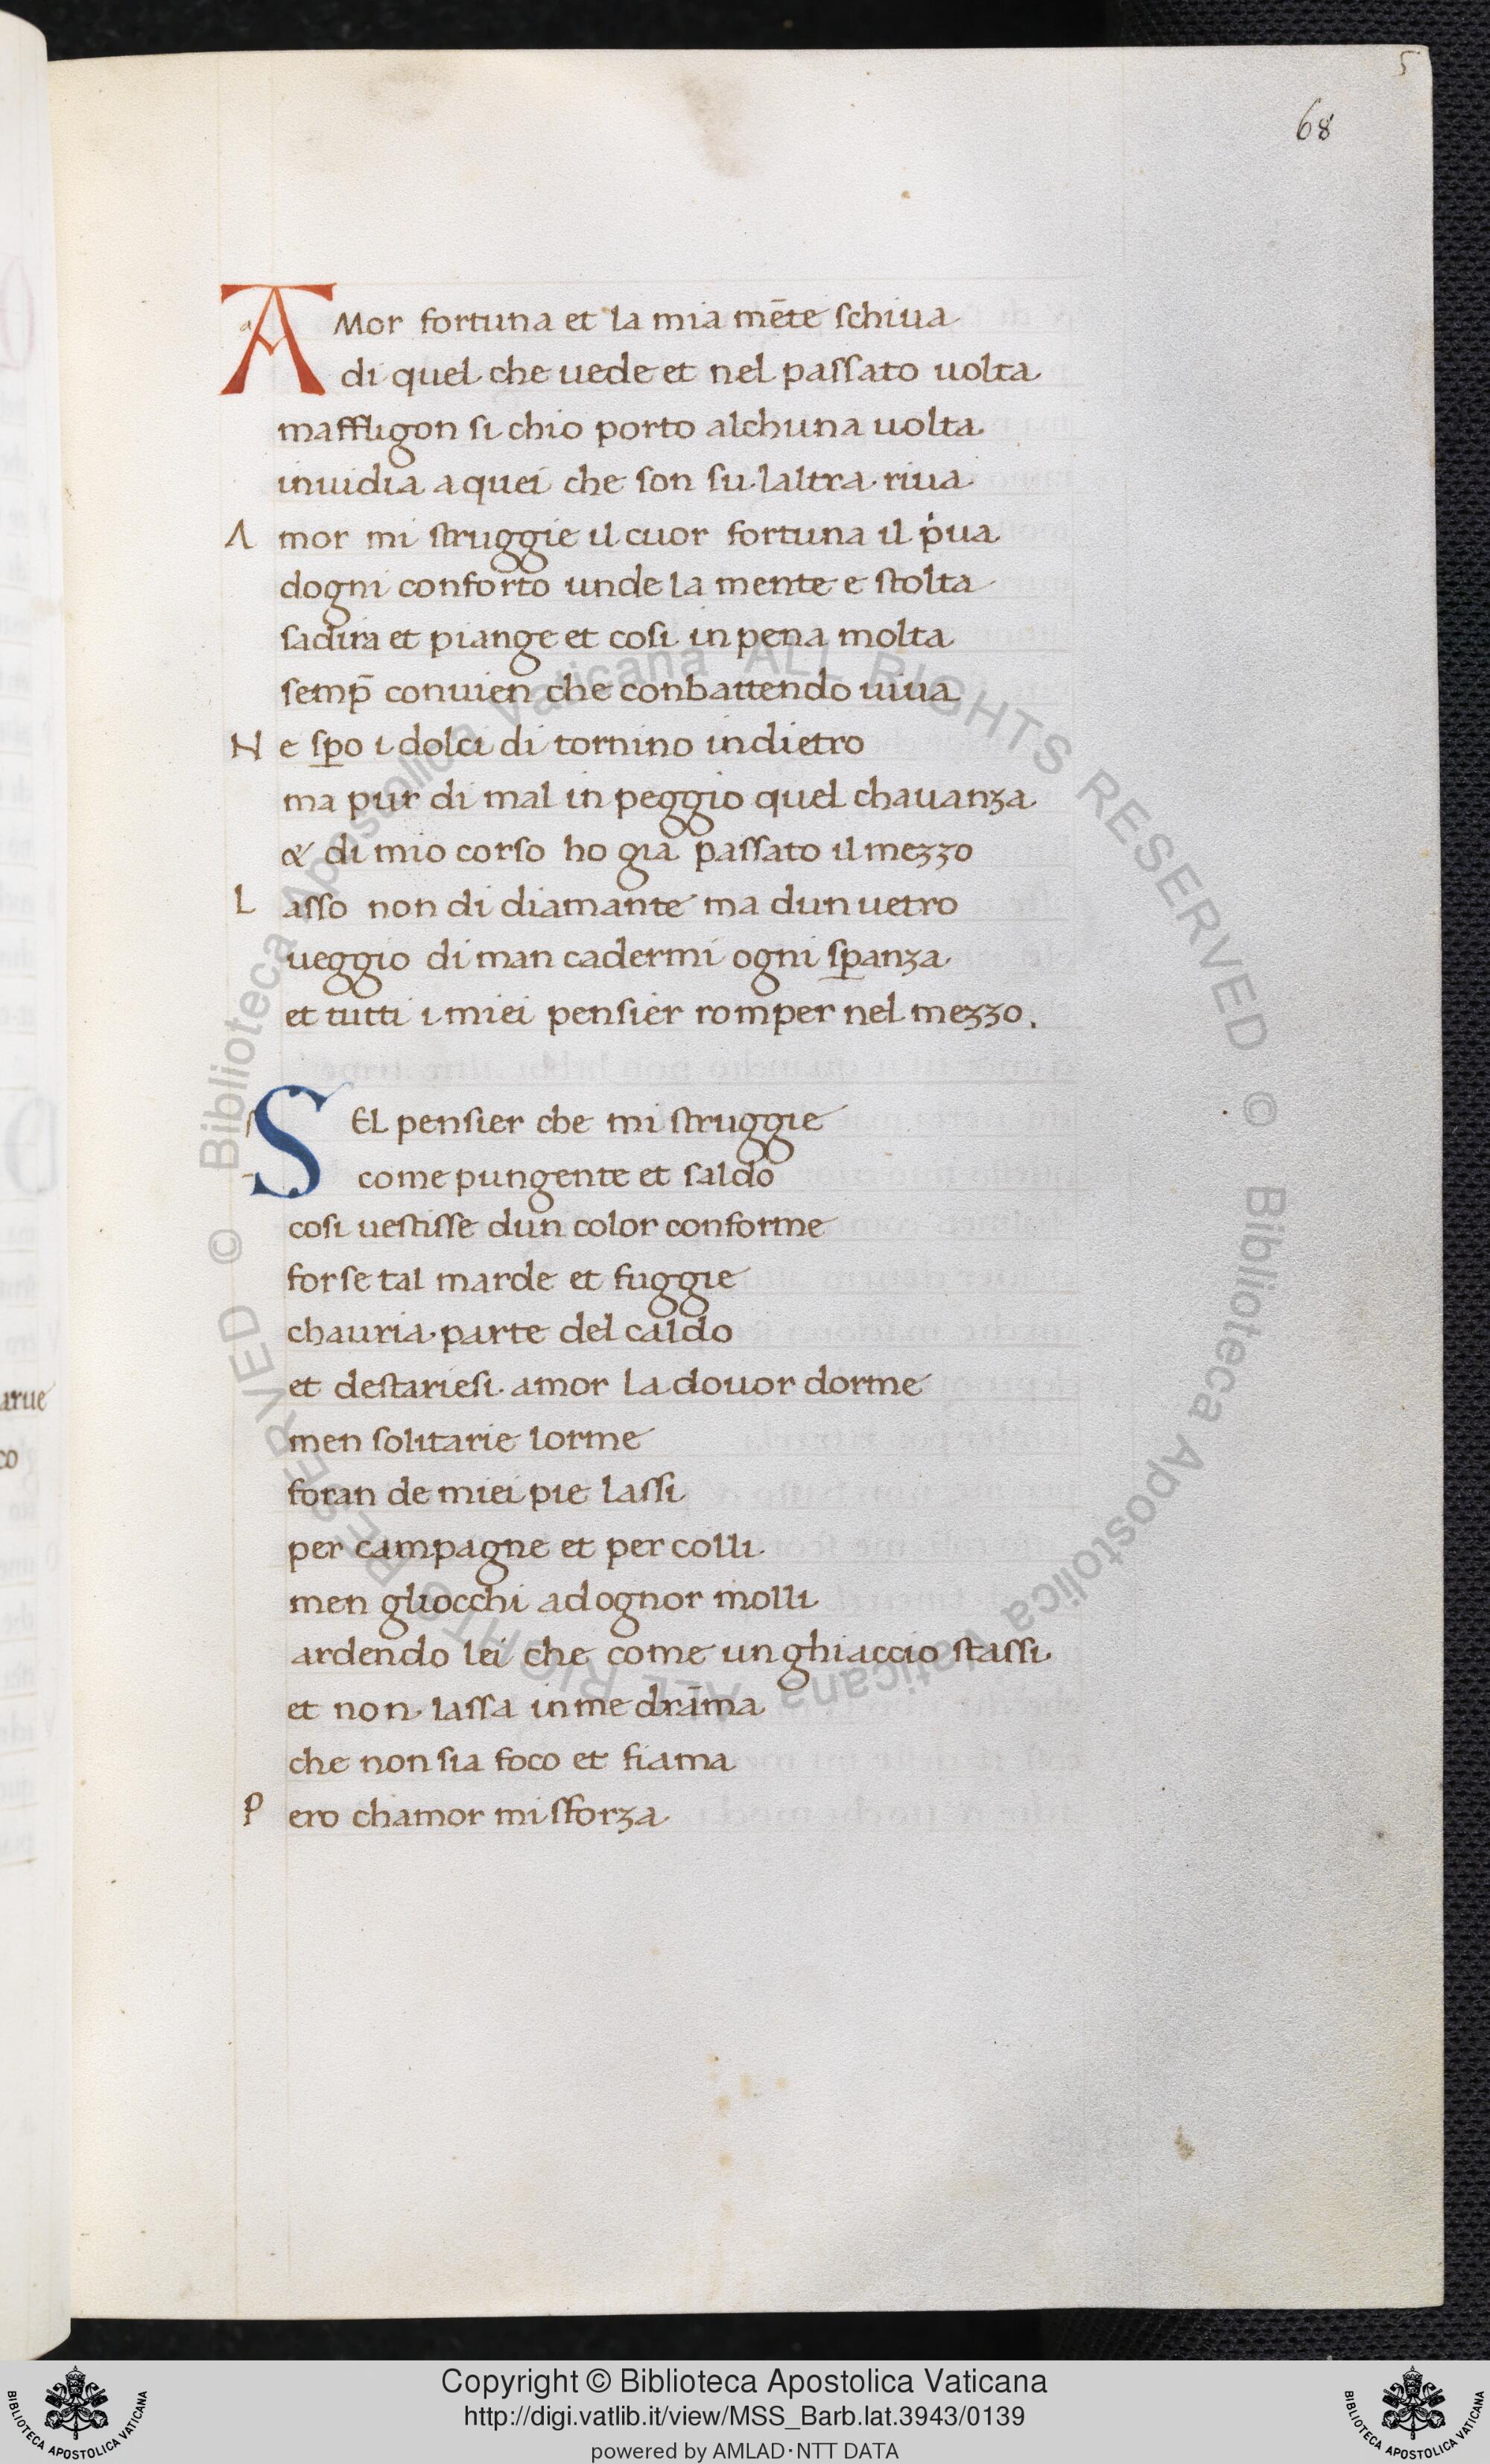 5
68
AMor fortuna et la mia mēte schiua
di quel che uede et nel passato uolta
maffligon si chio porto alchuna uolta
inuidia a quei che son su laltra riua
A mor mi struggie il cuor fortuna il pͥua
dogni conforto unde la mente e stolta
sadira et piange et cosi in pena molta
semp̄ conuien che conbattendo uiua
N e sꝑo i dolci di tornino indietro
ma pur di mal in peggio quel chauanza
& di mio corso ho gia passato il mezzo
L asso non di diamante ma dun uetro
ueggio di man cadermi ogni sꝑanza
et tutti i miei pensier romper nel mezzo.
SEL pensier che mi struggie
come pungente et saldo
cosi uestisse dun color conforme
forse tal marde et fuggie
chauria parte del caldo
et destariesi amor la douor dorme
men solitarie lorme
foran de miei pie lassi
per campagne et per colli
men gliocchi ad ognor molli
ardendo lei che come un ghiaccio stassi
et non lassa in me drāma
che non sia foco et fiama
P ero chamor mi sforza
arue
co
© Biblioteca Apostolica Vaticana ALL RIGHTS RESERVED © Biblioteca Apostolica Vaticana ALL RIGHTS RESERVED
Copyright © Biblioteca Apostolica Vaticana
http://digi.vatlib.it/view/MSS_Barb.lat.3943/0139
powered by AMLAD·NTT DATA
BIBLIOTECA APOSTOLICA VATICANA
BIBLIOTECA APOSTOLICA VATICANA